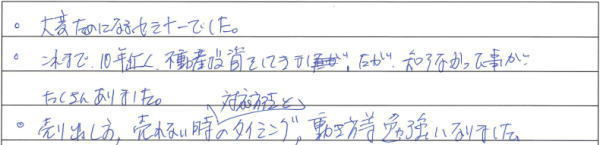 。大変ためになるセミナーでした。
。これまで、10年近く、不動産投資をしてきましたが、知らなかった事が
たくさんありました。
対応方法と
。売り出し方、売れない時のタイミング、動き方等勉強になりました。